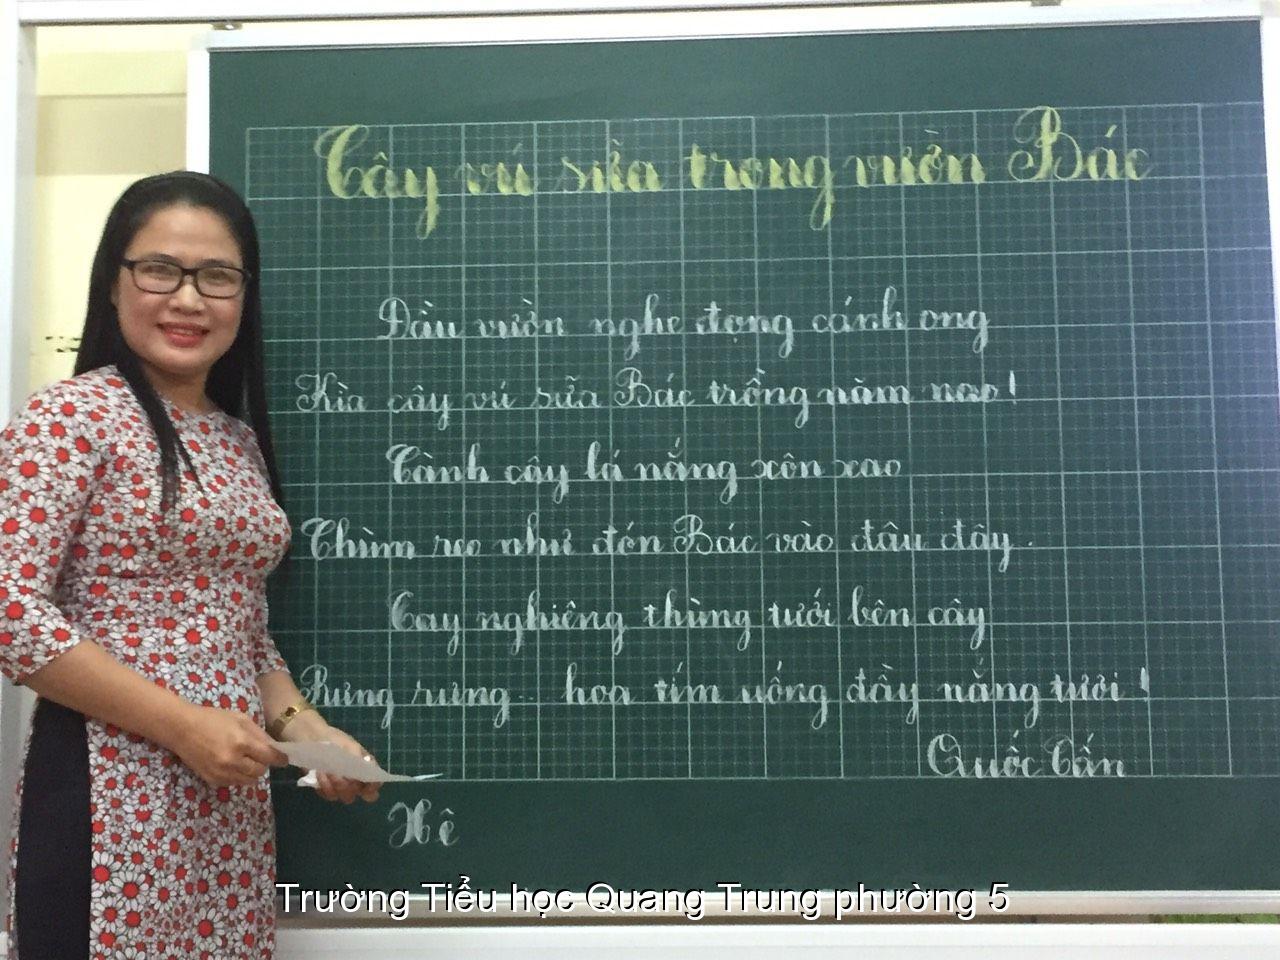 Cây vú sữa trong vườn Bác
Đầu vườn nghe đọng cánh ong
Kìa cây vú sữa Bác trồng năm nao!
Cành cây lá nắng xôn xao
Chùm reo như đón Bác vào đâu đây.
Tay nghiêng thùng tưới bên cây
Rưng rưng... hoa tím uống đầy nắng tươi!
Quốc Tấn
Hê
Trường Tiểu học Quang Trung phường 5